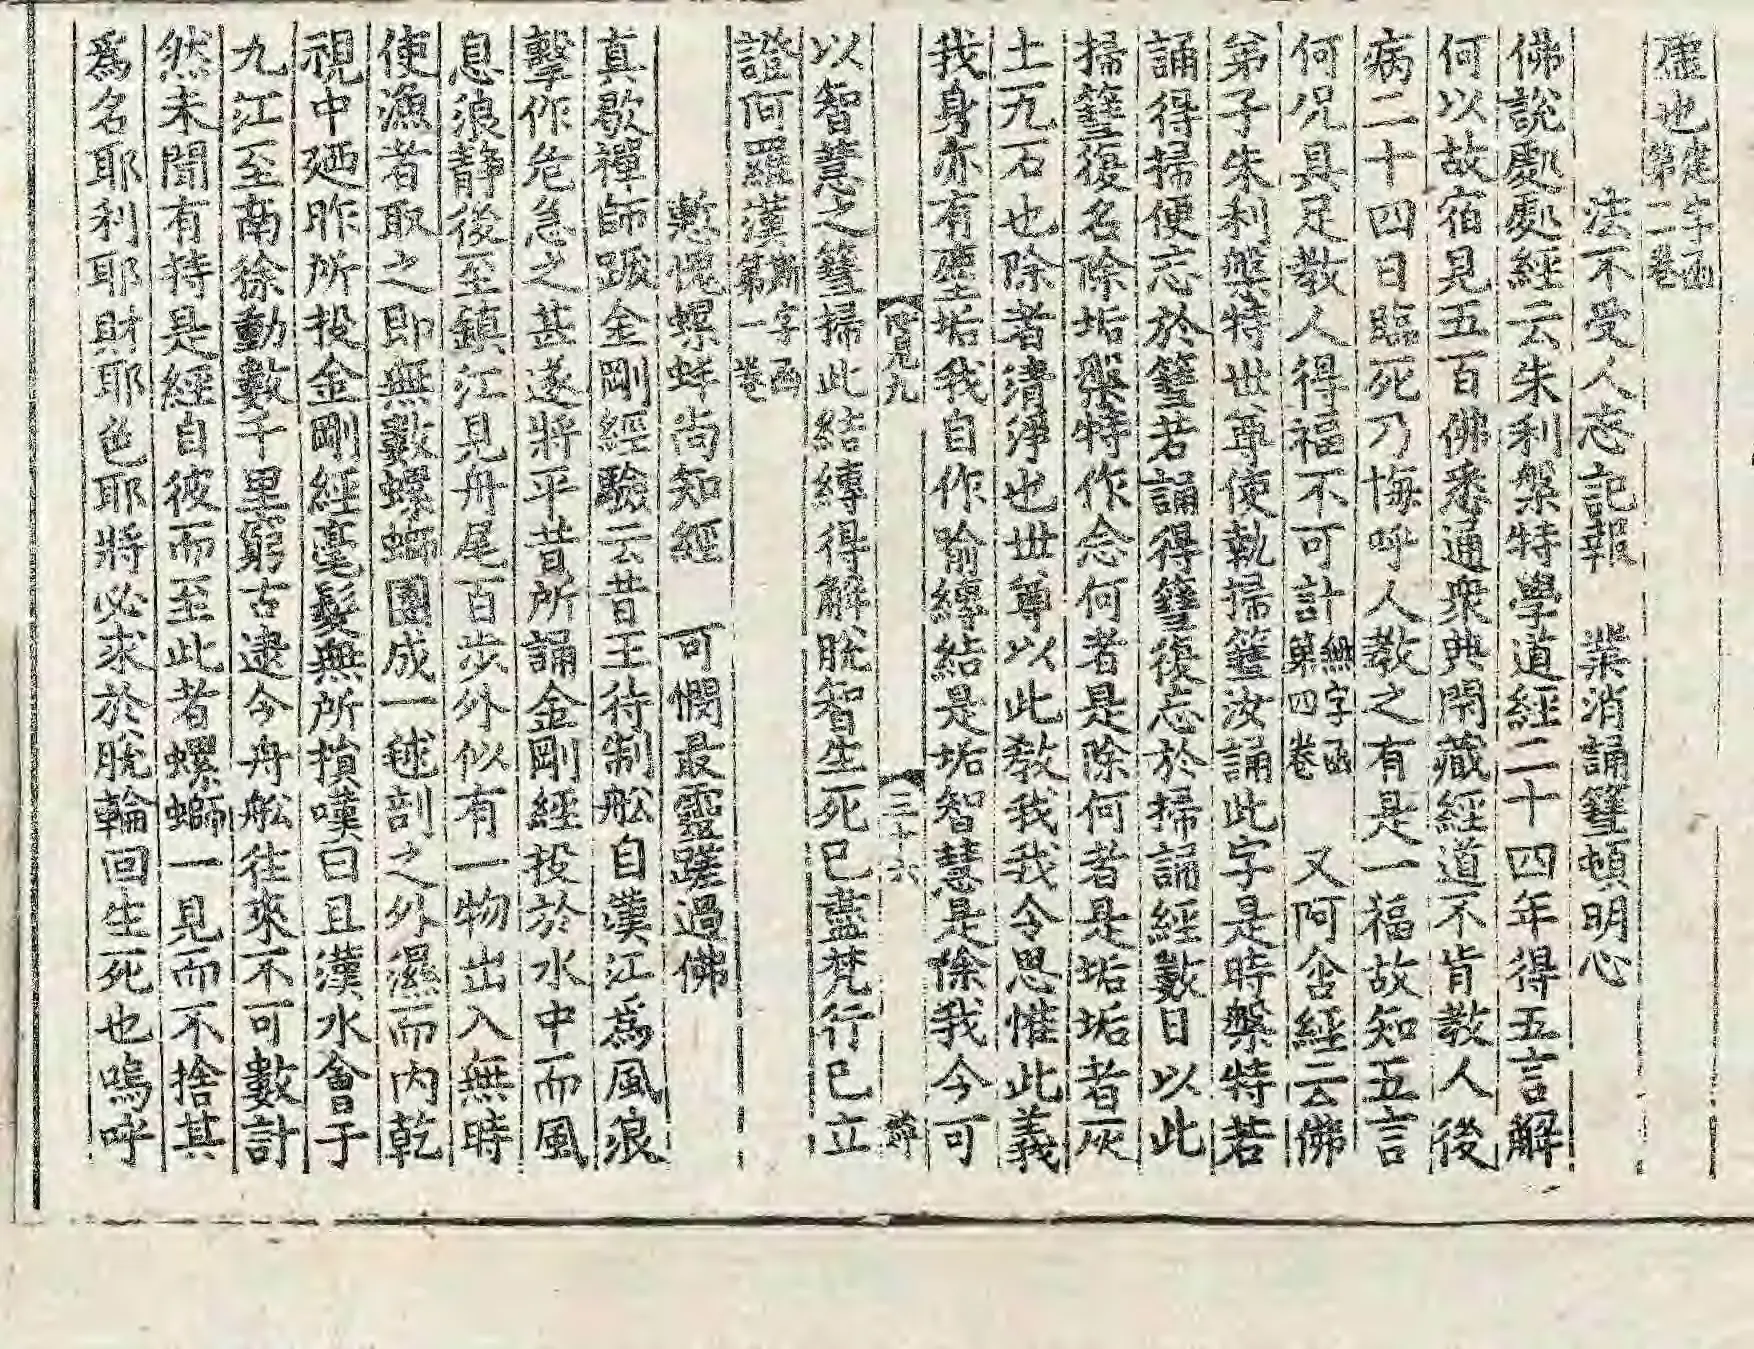 罹也建字函第二卷
法不受人忘記報 業消誦篲頓明心
佛說處處經云朱利槃特學道經二十四年得五言解
何以故宿見五百佛悉通衆典閉藏經道不肯教人後
病二十四日臨死乃悔呼人教之有是一福故知五言
何况具足教人得福不可計無字函第四卷 又阿含經云佛
弟子朱利槃特世尊使執掃篲汝誦此字是時槃特若
誦得掃便忘於篲若誦得篲復忘於掃誦經數日以此
掃篲復名除垢槃特作念何者是除何者是垢垢者灰
土瓦石也除者清淨也世尊以此教我我今思惟此義
我身亦有塵垢我自作喻縛結是垢智慧是除我今可
見九 三十六
以智慧之篲掃此結縛得解脫智生死已盡梵行已立
證阿羅漢斯字函第一卷
慙愧螺蚌尚知經 可憫最靈蹉過佛
真歇禪師跋金剛經驗云昔王待制舩自漢江爲風浪
擊作危急之甚遂將平昔所誦金剛經投於水中而風
息浪靜後至鎮江見舟尾百步外似有一物出入無時
使漁者取之即無數螺螄團成一毬剖之外濕而內乾
視中廼昨所投金剛經毫髮無所損嘆曰且漢水會于
九江至南徐動數千里窮古逮今舟舩往來不可數計
然未聞有持是經自彼而至此者螺螄一見而不捨其
爲名耶利耶財耶色耶將必求於脫輪回生死也嗚呼